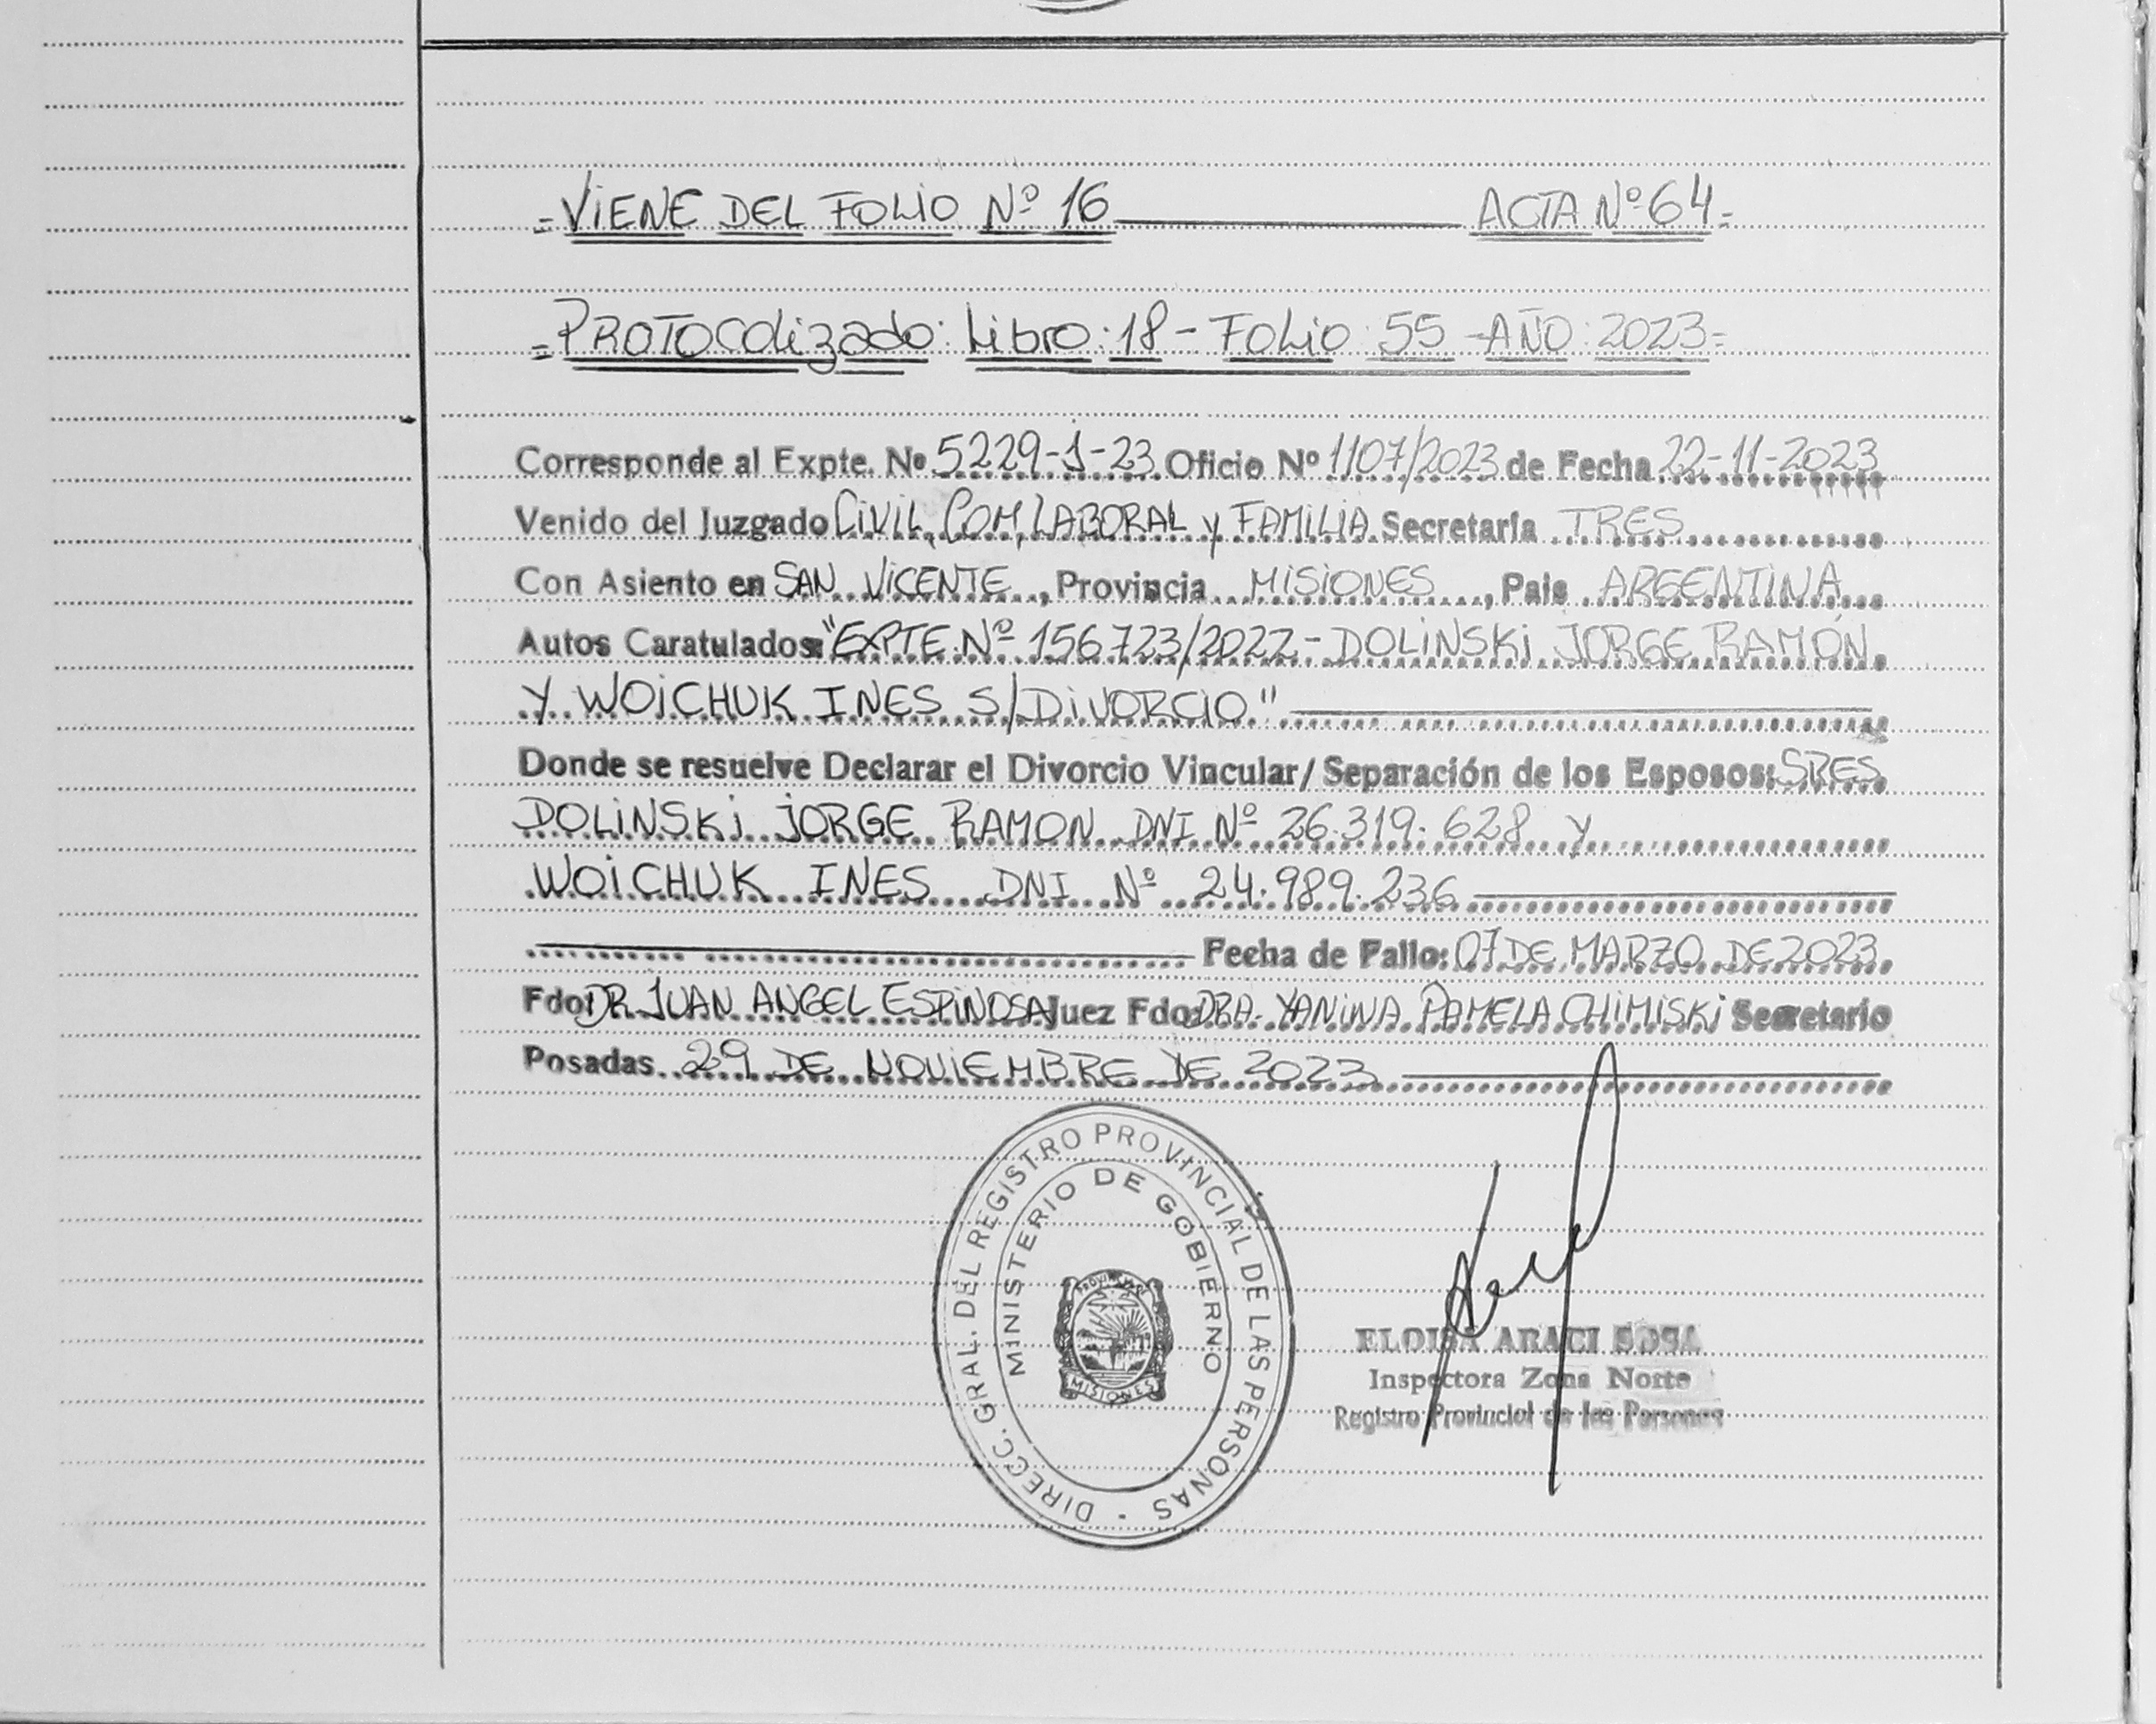 =VIENE DEL FOLIO Nº 16 ACTA Nº 64=
=PROTOCOlizado: Libro: 18 - FOLIO: 55 - AÑO: 2023=
Corresponde al Expte. Nº 5229-J-23 Oficio Nº 1107/2023 de Fecha 22-11-2023
Venido del Juzgado CIVIL, COM, LABORAL y FAMILIA Secretaría TRES
Con Asiento en SAN VICENTE, Provincia MISIONES, País ARGENTINA
Autos Caratulados: "EXPTE Nº 156723/2022 - DOLINSKI JORGE RAMÓN
Y WOICHUK INES S/DIVORCIO"
Donde se resuelve Declarar el Divorcio Vincular/Separación de los Esposos: SRES
DOLINSKI JORGE RAMON DNI Nº 26.319.628 y
WOICHUK INES DNI Nº 24.989.236
Fecha de Fallo: 07 DE MARZO DE 2023
Fdo: DR JUAN ANGEL ESPINOSA Juez Fdo: DRA. YANINA PAMELA CHIMISKI Secretario
Posadas 29 DE NOVIEMBRE DE 2023
DIRECC. GRAL. DEL REGISTRO PROVINCIAL DE LAS PERSONAS
MINISTERIO DE GOBIERNO
MISIONES
ELOISA ARACI SOSA
Inspectora Zona Norte
Registro Provincial de las Personas